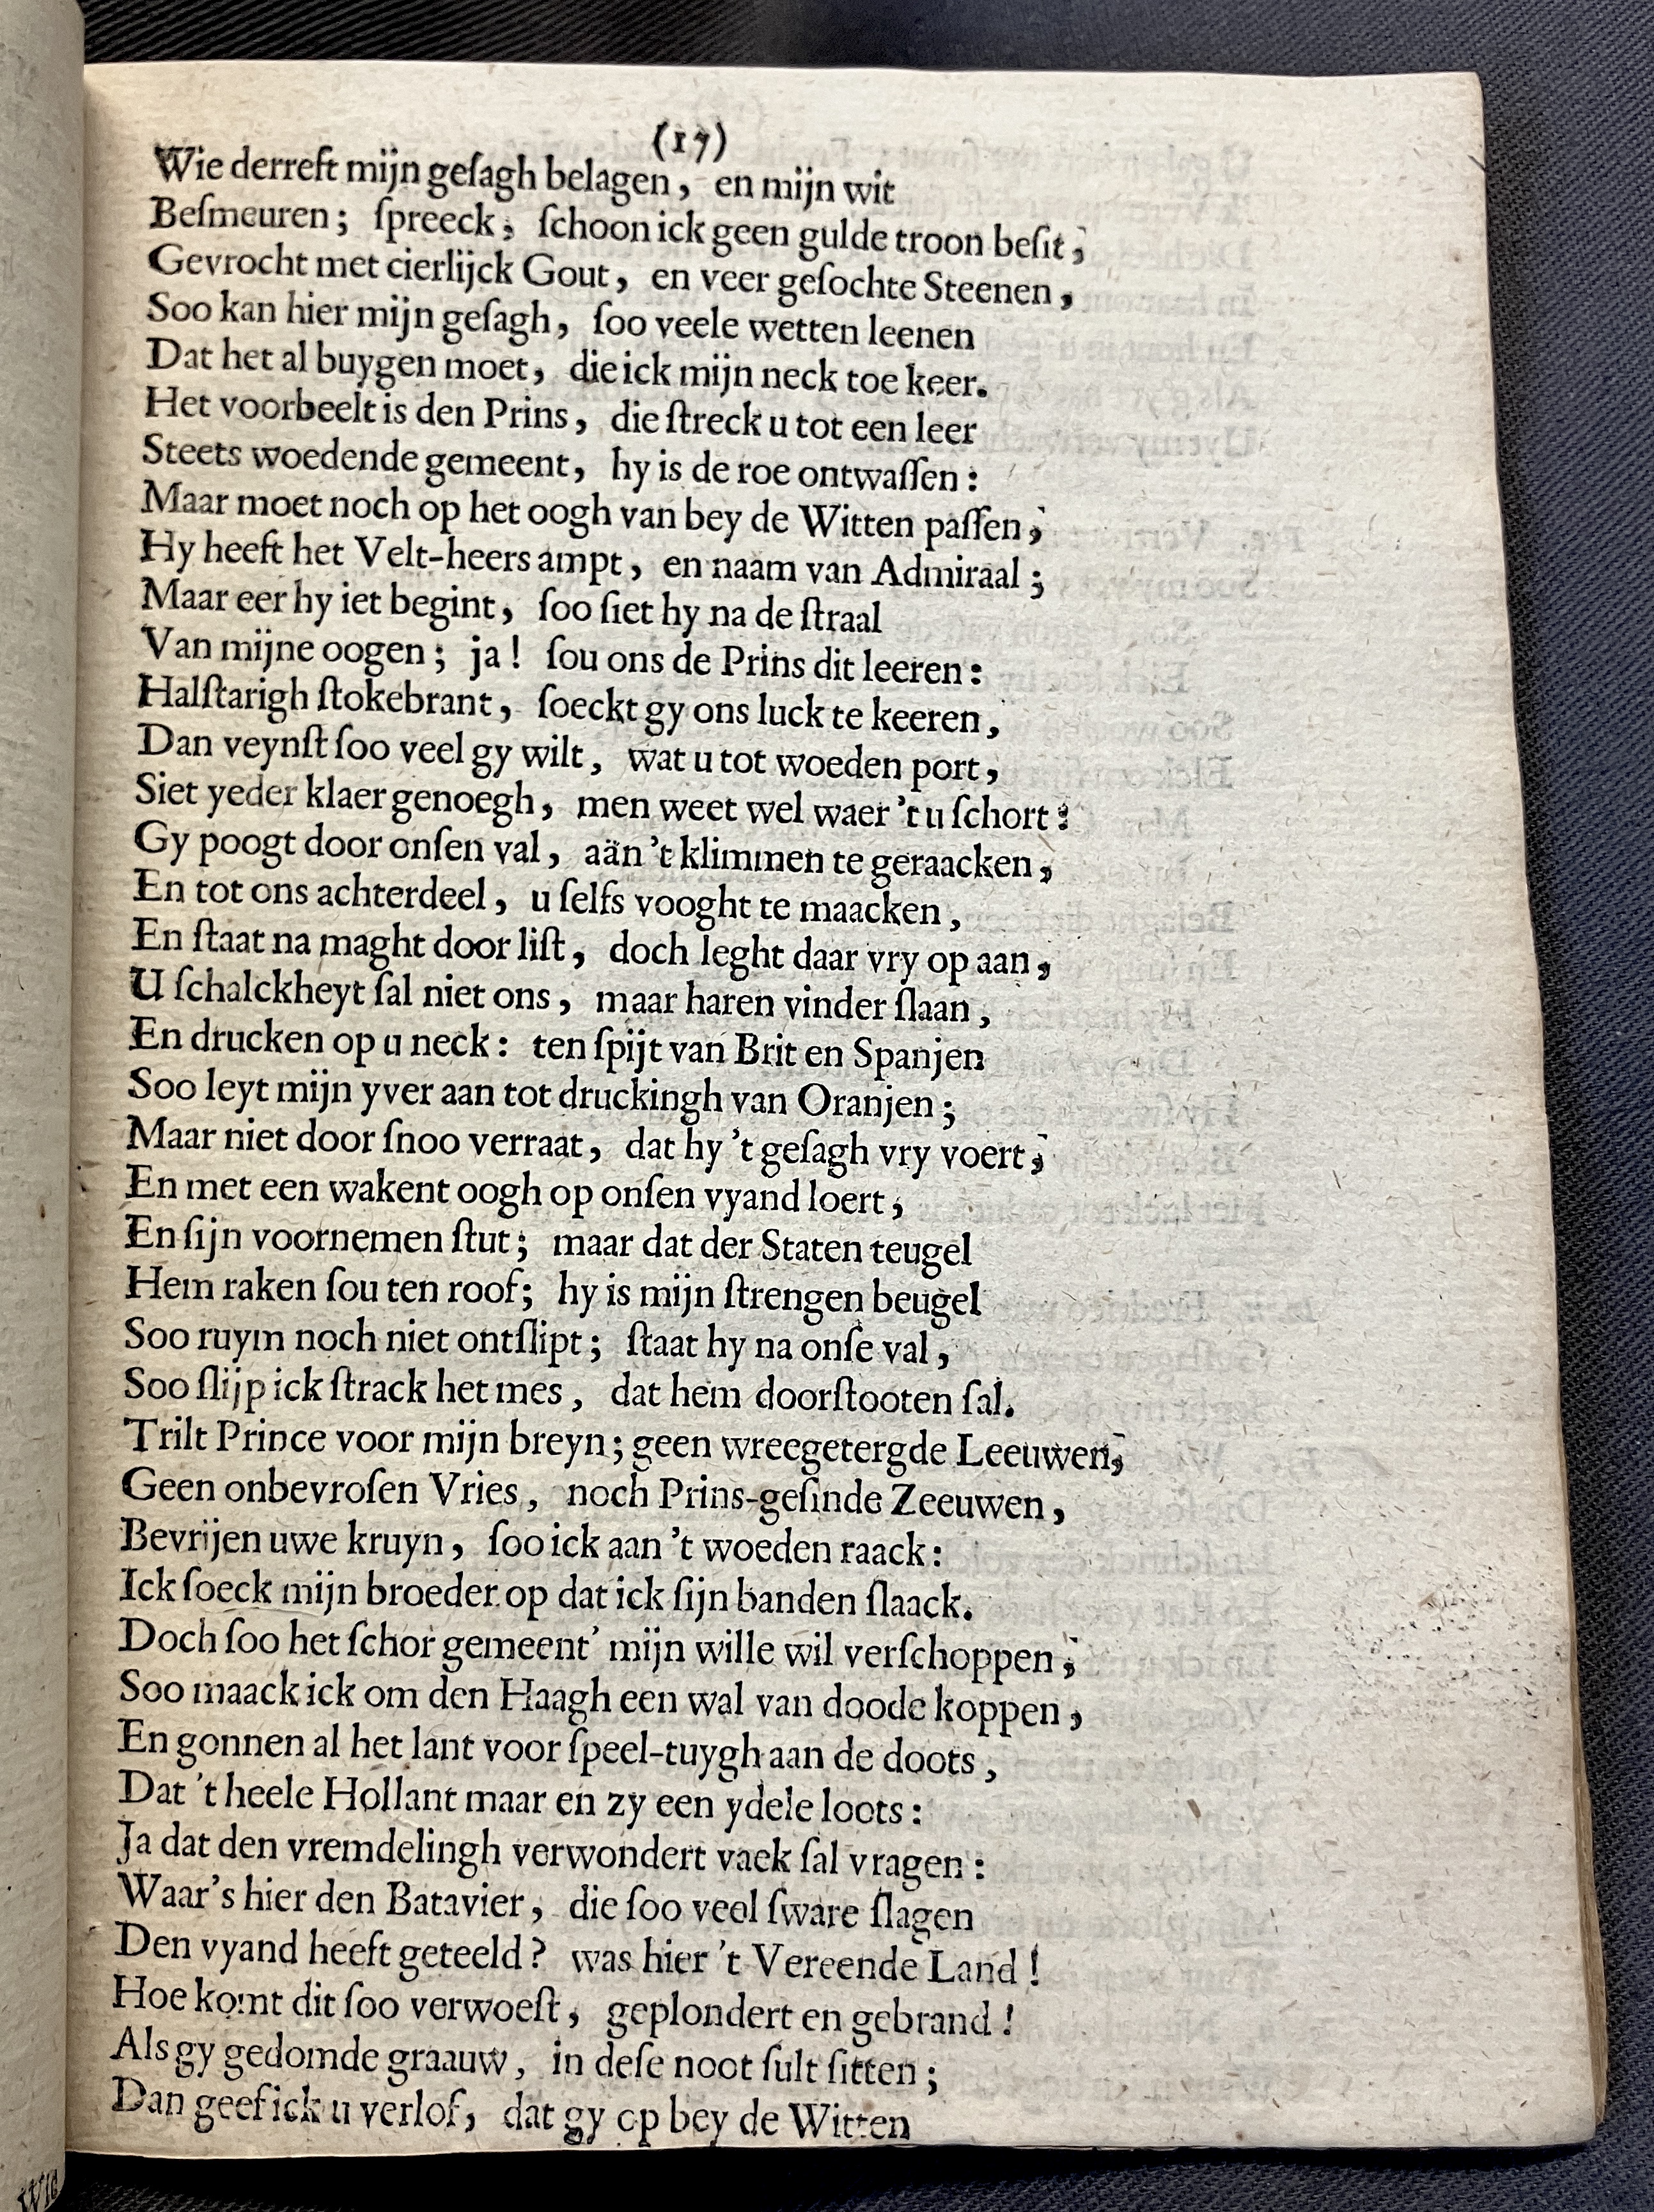 (17)
Wie derreft mijn geſagh belagen, en mijn wit
Beſmeuren; ſpreeck, ſchoon ick geen gulde troon beſit,
Gevrocht met cierlijck Gout, en veer geſochte Steenen,
Soo kan hier mijn geſagh, ſoo veele wetten leenen
Dat het al buygen moet, die ick mijn neck toe keer.
Het voorbeelt is den Prins, die ſtreck u tot een leer
Steets woedende gemeent, hy is de roe ontwaſſen:
Maar moet noch op het oogh van bey de Witten paſſen,
Hy heeft het Velt-heers ampt, en naam van Admiraal;
Maar eer hy iet begint, ſoo ſiet hy na de ſtraal
Van mijne oogen; ja! ſou ons de Prins dit leeren:
Halſtarigh ſtokebrant, ſoeckt gy ons luck te keeren,
Dan veynſt ſoo veel gy wilt, wat u tot woeden port,
Siet yeder klaer genoegh, men weet wel waer 't u ſchort:
Gy poogt door onſen val, aän 't klimmen te geraacken,
En tot ons achterdeel, u ſelfs vooght te maacken,
En ſtaat na maght door liſt, doch leght daar vry op aan,
U ſchalckheyt ſal niet ons, maar haren vinder ſlaan,
En drucken op u neck: ten ſpijt van Brit en Spanjen
Soo leyt mijn yver aan tot druckingh van Oranjen;
Maar niet door ſnoo verraat, dat hy 't geſagh vry voert,
En met een wakent oogh op onſen vyand loert,
En ſijn voornemen ſtut; maar dat der Staten teugel
Hem raken ſou ten roof; hy is mijn ſtrengen beugel
Soo ruym noch niet ontſlipt; ſtaat hy na onſe val,
Soo ſlijp ick ſtrack het mes, dat hem doorſtooten ſal.
Trilt Prince voor mijn breyn; geen wreegetergde Leeuwen,
Geen onbevroſen Vries, noch Prins-geſinde Zeeuwen,
Bevrijen uwe kruyn, ſoo ick aan 't woeden raack:
Ick ſoeck mijn broeder op dat ick ſijn banden ſlaack.
Doch ſoo het ſchor gemeent' mijn wille wil verſchoppen,
Soo maack ick om den Haagh een wal van doode koppen,
En gonnen al het lant voor ſpeel-tuygh aan de doots,
Dat 't heele Hollant maar en zy een ydele loots:
Ja dat den vremdelingh verwondert vaek ſal vragen:
Waar's hier den Batavier, die ſoo veel ſware ſlagen
Den vyand heeft geteeld? was hier 't Vereende Land!
Hoe komt dit ſoo verwoeſt, geplondert en gebrand!
Als gy gedomde graauw, in deſe noot ſult ſitten;
Dan geef ick u verlof, dat gy op bey de Witten
Wie